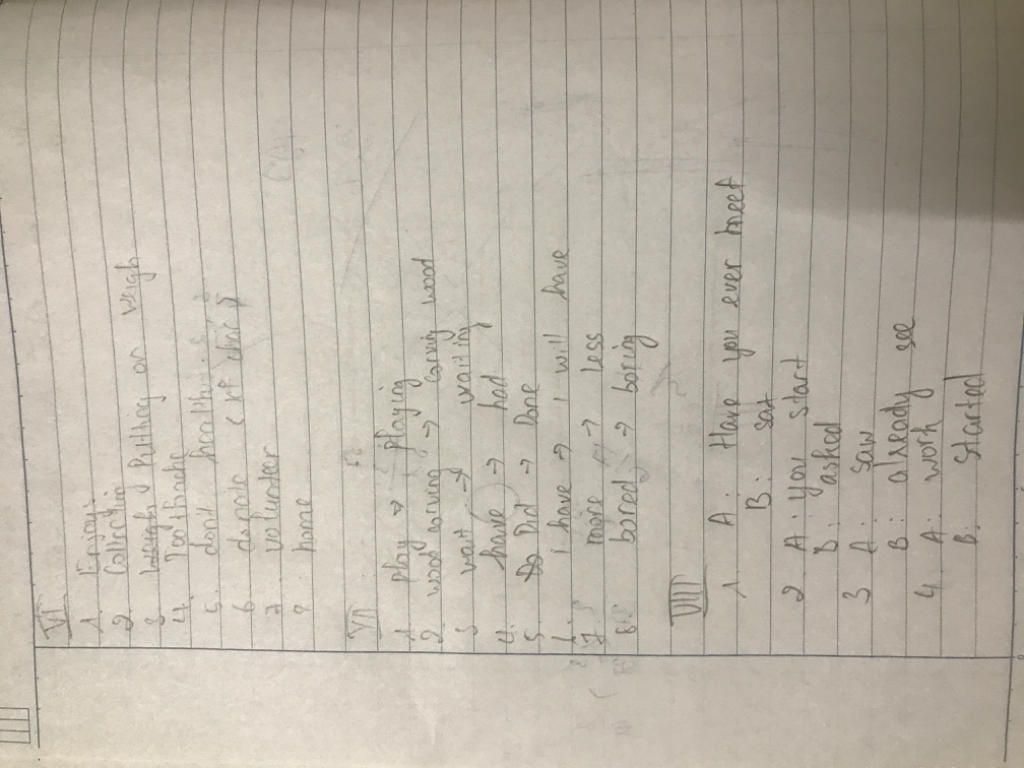 VI
1. Enjoy
2. Collectin
3. Putting on weigh
4. Toothache
5. don't healthy
6. donate
7. volunteer
8. home
VII
1. play → playing
2. wood carving → carving wood
3 wait → waiting
4. have → had
5. Did → Done
6. I have → I will have
7. more → less
8. bored → boring
VIII
1 A: Have you ever meet
B: sat
2 A: you start
B: asked
3 A: saw
B: already see
4 A: work
B: started